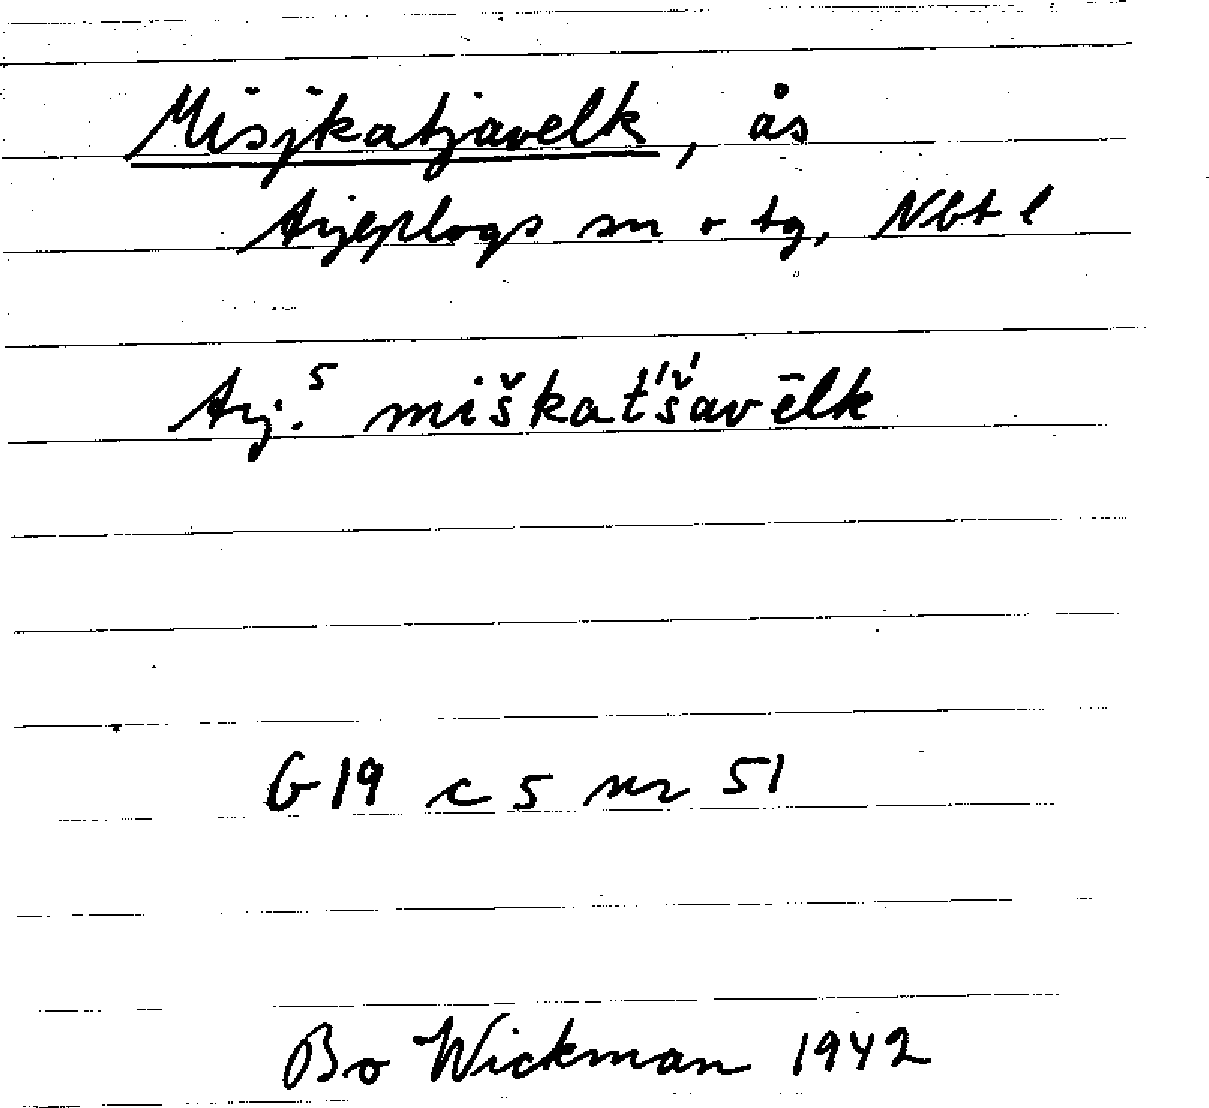 Misjkatjavelk, ås
Arjeplogs sn o tg, Nbt l
Arj.⁵ miškat́'š́avēlk
G19 c 5 nr 51
Bo Wickman 1942